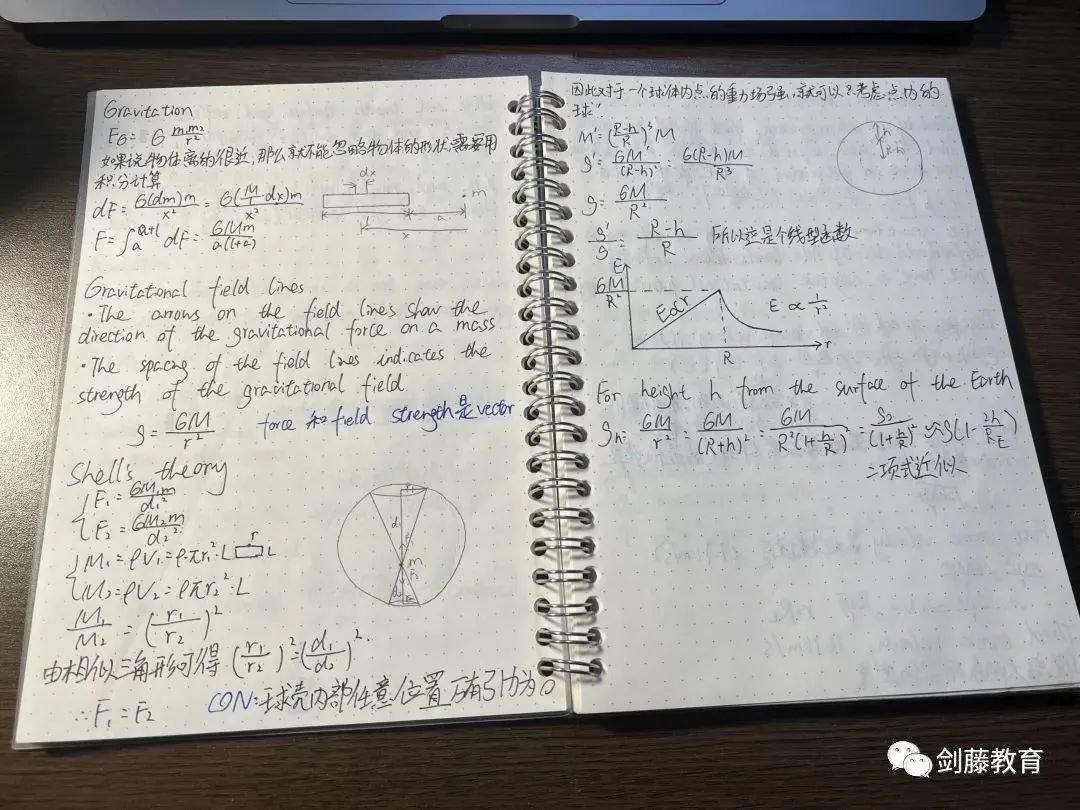 Gravitation
F_G = G m₁m₂/r²
如果说物体离的很近,那么就不能忽略物体的形状,需要用
积分计算
dF = G(dm)m/x² = G(M/l·dx)m/x²
F = ∫ₐ^(a+l) dF = GMm/a(l+a)
dx
m
l
a
x
Gravitational field lines
· The arrows on the field lines show the
direction of the gravitational force on a mass
· The spacing of the field lines indicates the
strength of the gravitational field
g = GM/r²
force 和 field strength 是 vector
Shell's theory
F₁ = GM₁m/d₁²
F₂ = GM₂m/d₂²
M₁ = ρV₁ = ρ·πr₁²·L
r
L
M₂ = ρV₂ = ρπr₂²·L
M₁/M₂ = (r₁/r₂)²
由相似三角形可得 (r₁/r₂)² = (d₁/d₂)²
∴ F₁ = F₂
CON: 球壳内部任意位置万有引力为0
r₁
d₁
m
F₂
d₂
r₂
因此对于一个球体内点的重力场强,就可以只考虑点内的
球'
M' = (R-h/R)³M
g' = GM'/(R-h)² = G(R-h)M/R³
g = GM/R²
g'/g = R-h/R 所以这是个线型函数
h
R-h
E
GM/R²
E∝r
E ∝ 1/r²
R
r
For height h from the surface of the Earth
gₕ = GM/r² = GM/(R+h)² = GM/R²(1+h/R)² = g/(1+h/R)² ≈ g(1-2h/R_E)
二项式近似
剑藤教育